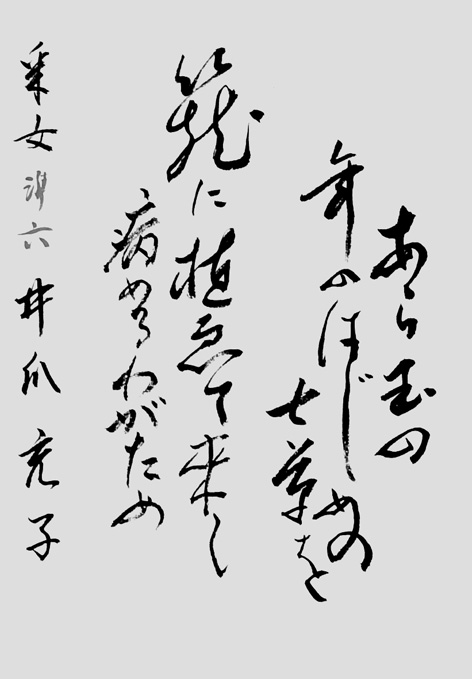 あら玉の
年のはじめの
七草を
籠に植ゑて来し
病めるわがため
采女 六 井爪 充子